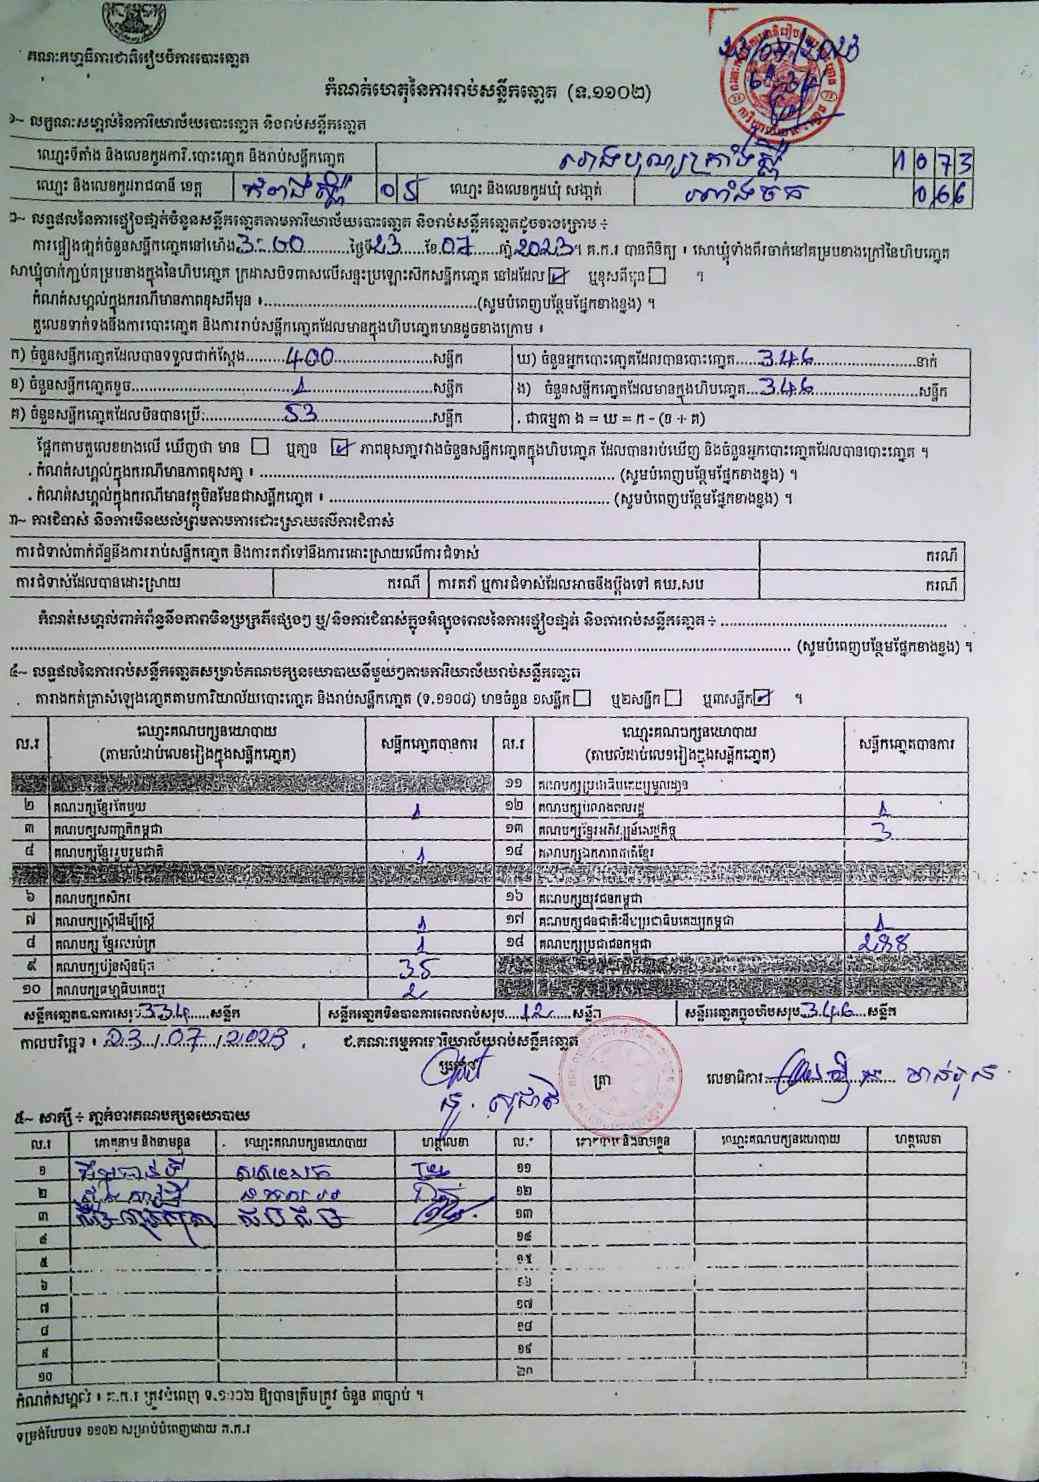 គណៈកម្មាធិការជាតិរៀបចំការបោះឆ្នោត
23/07/2023
កំណត់ហេតុនៃការរាប់សន្លឹកឆ្នោត (ទ.១១០២)
១~ លក្ខណៈសម្គាល់នៃការិយាល័យបោះឆ្នោត និងរាប់សន្លឹកឆ្នោត
ឈ្មោះទីតាំង និងលេខកូដការិ.បោះឆ្នោត និងរាប់សន្លឹកឆ្នោត 1073
ឈ្មោះ និងលេខកូដរាជធានី ខេត្ត កំពង់ស្ពឺ 05 ឈ្មោះ និងលេខកូដឃុំ សង្កាត់ 066
២~ លទ្ធផលនៃការផ្ទៀងផ្ទាត់ចំនួនសន្លឹកឆ្នោតតាមការិយាល័យបោះឆ្នោត និងរាប់សន្លឹកឆ្នោតដូចខាងក្រោម ÷
ការផ្ទៀងផ្ទាត់ចំនួនសន្លឹកឆ្នោតនៅម៉ោង 3:00 ថ្ងៃទី 23 ខែ 07 ឆ្នាំ 2023 ។ គ.ក.រ បានពិនិត្យ ៖ សោឃ្លុំទាំងពីរចាក់នៅគម្របខាងក្រៅនៃហិបឆ្នោត
សោឃ្លុំចាក់ភ្ជាប់គម្របខាងក្នុងនៃហិបឆ្នោត ក្រដាសបិទពាសលើសន្ទះប្រឡោះស៊កសន្លឹកឆ្នោត នៅដដែល ☑ ឬខុសពីមុន ☐ ។
កំណត់សម្គាល់ក្នុងករណីមានភាពខុសពីមុន ៖ (សូមបំពេញបន្ថែមផ្នែកខាងខ្នង) ។
តួលេខទាក់ទងនឹងការបោះឆ្នោត និងការរាប់សន្លឹកឆ្នោតដែលមានក្នុងហិបឆ្នោតមានដូចខាងក្រោម ៖
ក) ចំនួនសន្លឹកឆ្នោតដែលបានទទួលជាក់ស្តែង 400 សន្លឹក ឃ) ចំនួនអ្នកបោះឆ្នោតដែលបានបោះឆ្នោត 346 នាក់
ខ) ចំនួនសន្លឹកឆ្នោតខូច 1 សន្លឹក ង) ចំនួនសន្លឹកឆ្នោតដែលមានក្នុងហិបឆ្នោត 346 សន្លឹក
គ) ចំនួនសន្លឹកឆ្នោតដែលមិនបានប្រើ 53 សន្លឹក . ជាធម្មតា ង = ឃ = ក - (ខ + គ)
ផ្អែកតាមតួលេខខាងលើ ឃើញថា មាន ☐ ឬគ្មាន ☑ ភាពខុសគ្នារវាងចំនួនសន្លឹកឆ្នោតក្នុងហិបឆ្នោត ដែលបានរាប់ឃើញ និងចំនួនអ្នកបោះឆ្នោតដែលបានបោះឆ្នោត ។
. កំណត់សម្គាល់ក្នុងករណីមានភាពខុសគ្នា ៖ (សូមបំពេញបន្ថែមផ្នែកខាងខ្នង) ។
. កំណត់សម្គាល់ក្នុងករណីមានវត្ថុមិនមែនជាសន្លឹកឆ្នោត ៖ (សូមបំពេញបន្ថែមផ្នែកខាងខ្នង) ។
៣~ ការជំទាស់ និងការមិនយល់ព្រមតាមការដោះស្រាយលើការជំទាស់
ការជំទាស់ពាក់ព័ន្ធនឹងការរាប់សន្លឹកឆ្នោត និងការតវ៉ាទៅនឹងការដោះស្រាយលើការជំទាស់ ករណី
ការជំទាស់ដែលបានដោះស្រាយ ករណី ការតវ៉ា ឬការជំទាស់ដែលអាចនឹងប្តឹងទៅ គឃ.សប ករណី
កំណត់សម្គាល់ពាក់ព័ន្ធនឹងភាពមិនប្រក្រតីផ្សេងៗ ឬ/និងការជំទាស់ក្នុងអំឡុងពេលនៃការផ្ទៀងផ្ទាត់ និងការរាប់សន្លឹកឆ្នោត ÷
(សូមបំពេញបន្ថែមផ្នែកខាងខ្នង) ។
៤~ លទ្ធផលនៃការរាប់សន្លឹកឆ្នោតសម្រាប់គណបក្សនយោបាយនីមួយៗតាមការិយាល័យរាប់សន្លឹកឆ្នោត
តារាងកត់ត្រាសំឡេងឆ្នោតតាមការិយាល័យបោះឆ្នោត និងរាប់សន្លឹកឆ្នោត (ទ.១១០៨) មានចំនួន ១សន្លឹក ☐ ឬ២សន្លឹក ☐ ឬ៣សន្លឹក ☑ ។
ល.រ ឈ្មោះគណបក្សនយោបាយ (តាមលំដាប់លេខរៀងក្នុងសន្លឹកឆ្នោត) សន្លឹកឆ្នោតបានការ ល.រ ឈ្មោះគណបក្សនយោបាយ (តាមលំដាប់លេខរៀងក្នុងសន្លឹកឆ្នោត) សន្លឹកឆ្នោតបានការ
១១ គណបក្សប្រជាធិបតេយ្យមូលដ្ឋាន
២ គណបក្សខ្មែរតែមួយ 1 ១២ គណបក្សពលរដ្ឋ 1
៣ គណបក្សសញ្ជាតិកម្ពុជា ១៣ គណបក្សខ្មែរអភិវឌ្ឍន៍សេដ្ឋកិច្ច 3
៤ គណបក្សខ្មែររួបរួមជាតិ 1 ១៤ គណបក្សឯកភាពជាតិខ្មែរ
៦ គណបក្សកសិករ ១៦ គណបក្សយុវជនកម្ពុជា
៧ គណបក្សស្រ្តីដើម្បីស្រ្តី 1 ១៧ គណបក្សជនជាតិដើមប្រជាធិបតេយ្យកម្ពុជា 1
៨ គណបក្ស ខ្មែរឈប់ក្រ 1 ១៨ គណបក្សប្រជាជនកម្ពុជា 288
៩ គណបក្សហ្វ៊ុនស៊ិនប៉ិច 35
១០ គណបក្សធម្មាធិបតេយ្យ 2
សន្លឹកឆ្នោតបានការសរុប 334 សន្លឹក សន្លឹកឆ្នោតមិនបានការពេលរាប់សរុប 12 សន្លឹក សន្លឹកឆ្នោតក្នុងហិបសរុប 346 សន្លឹក
កាលបរិច្ឆេទ ៖ 23/07/2023 . ជ.គណៈកម្មការការិយាល័យរាប់សន្លឹកឆ្នោត
ប្រធាន
ត្រា លេខាធិការ
៥~ សាក្សី ÷ ភ្នាក់ងារគណបក្សនយោបាយ
ល.រ គោត្តនាម និងនាមខ្លួន ឈ្មោះគណបក្សនយោបាយ ហត្ថលេខា ល.រ គោត្តនាម និងនាមខ្លួន ឈ្មោះគណបក្សនយោបាយ ហត្ថលេខា
១ ១១
២ ១២
៣ ១៣
៤ ១៤
៥ ១៥
៦ ១៦
៧ ១៧
៨ ១៨
៩ ១៩
១០ ២០
កំណត់សម្គាល់ ៖ គ.ក.រ ត្រូវបំពេញ ទ.១១០២ ឱ្យបានត្រឹមត្រូវ ចំនួន ៣ច្បាប់ ។
ទម្រង់បែបបទ ១១០២ សម្រាប់បំពេញដោយ គ.ក.រ